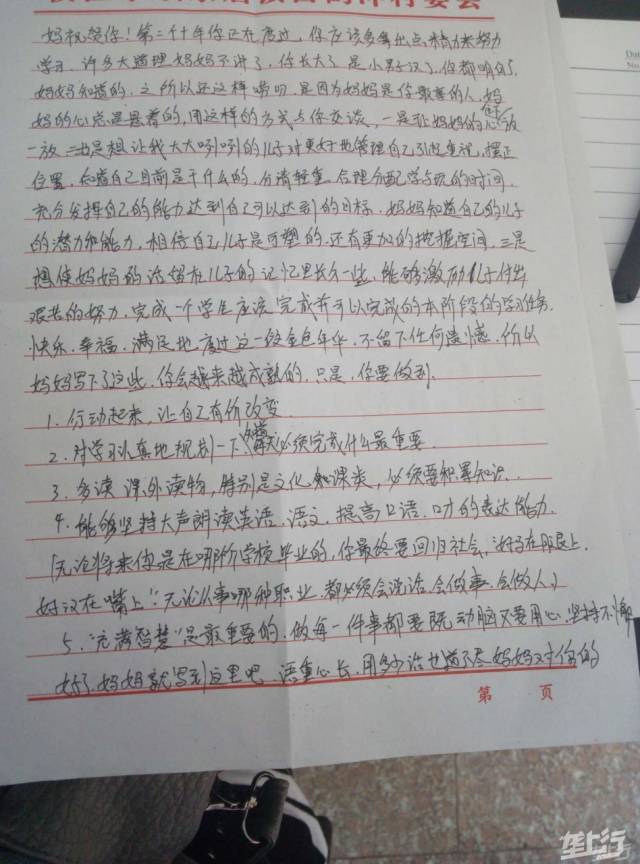 妈祝贺你！第二个十年你正在度过，你应该多拿出点精力来努力
学习，许多大道理妈妈不讲了，你长大了是小男子汉了，你都明白，
妈妈知道的。之所以还这样唠叨，是因为妈妈是你最亲的人，妈
妈的心总是悬着的，用这样的方式与你交谈，一是让妈妈的心放
一放，二也是想让我大大咧咧的儿子对更好地管理自己引起重视，摆正
位置，知道自己目前是干什么的，分清轻重，合理分配学与玩的时间，
充分发挥自己的能力达到自己可以达到的目标，妈妈知道自己的儿子
的潜力和能力，相信自己儿子是可塑的，还有更加的挖掘空间，三是
想使妈妈的话留在儿子的记忆里长久一些，能够激励儿子付出
艰苦的努力，完成一个学生应该完成并可以完成的本阶段的学习任务，
快乐、幸福、满足地度过这一段金色年华，不留下任何遗憾。所以
妈妈写下了这些，你会越来越成熟的，只是，你要做到：
1. 行动起来，让自己有所改变
2. 对学习认真地规划一下，每天必须完成什么最重要
3. 多读课外读物，特别是文化知识类，必须要积累知识。
4. 能够坚持大声朗读英语、语文，提高口语、口才的表达能力。
（无论将来你是在哪所学校毕业的，你最终要回归社会，"好马在腿上，
好汉在嘴上"，无论从事哪种职业，都必须会说话、会做事、会做人）
5. "充满智慧"是最重要的，做每一件事都要既动脑又要用心，坚持不懈
好了，妈妈就写到这里吧，语重心长，用多少话也道不尽妈妈对你的
第 页
垄上行